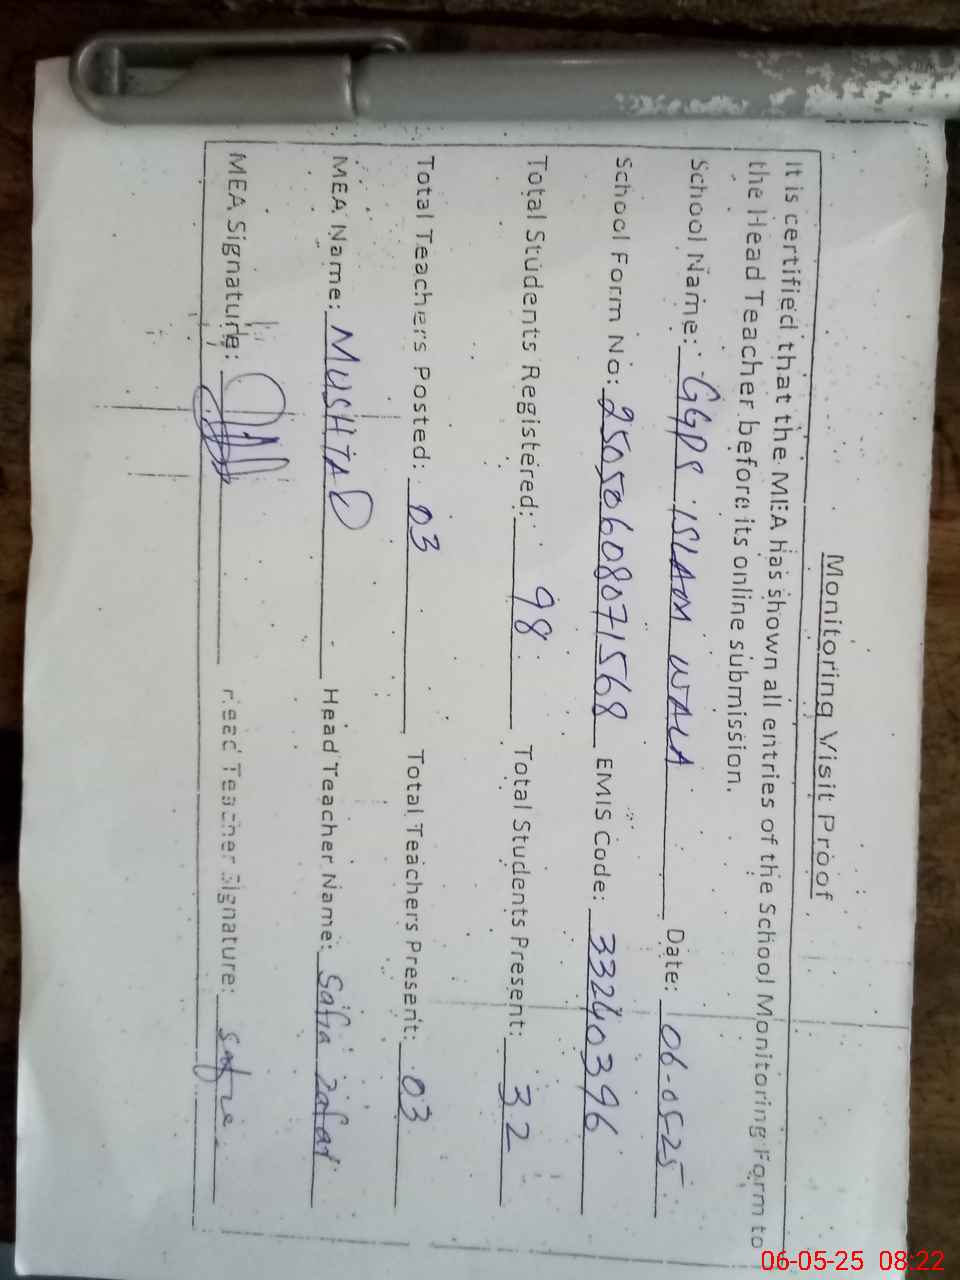 Monitoring Visit Proof
It is certified that the MEA has shown all entries of the School Monitoring Form to
the Head Teacher before its online submission.
School Name: GGPS ISLAM WALA Date: 06-05-25
School Form No: 25050608071568 EMIS Code: 33240396
Total Students Registered: 98 Total Students Present: 32
Total Teachers Posted: 03 Total Teachers Present: 03
MEA Name: MUSHTAQ Head Teacher Name: Safia Zafar
MEA Signature: Head Teacher Signature: Safia
06-05-25 08:22